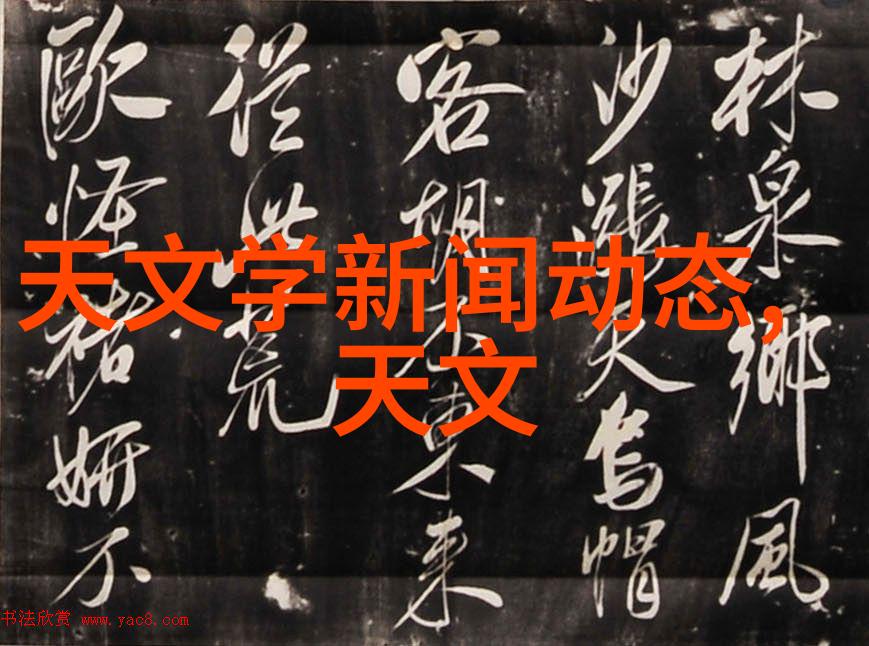 林泉鄉風
沙漲天烏帽
客胡不東來
從荒
歐怪褚妍不
天文学新闻动态,
天文
书法欣赏 www.yac8.com